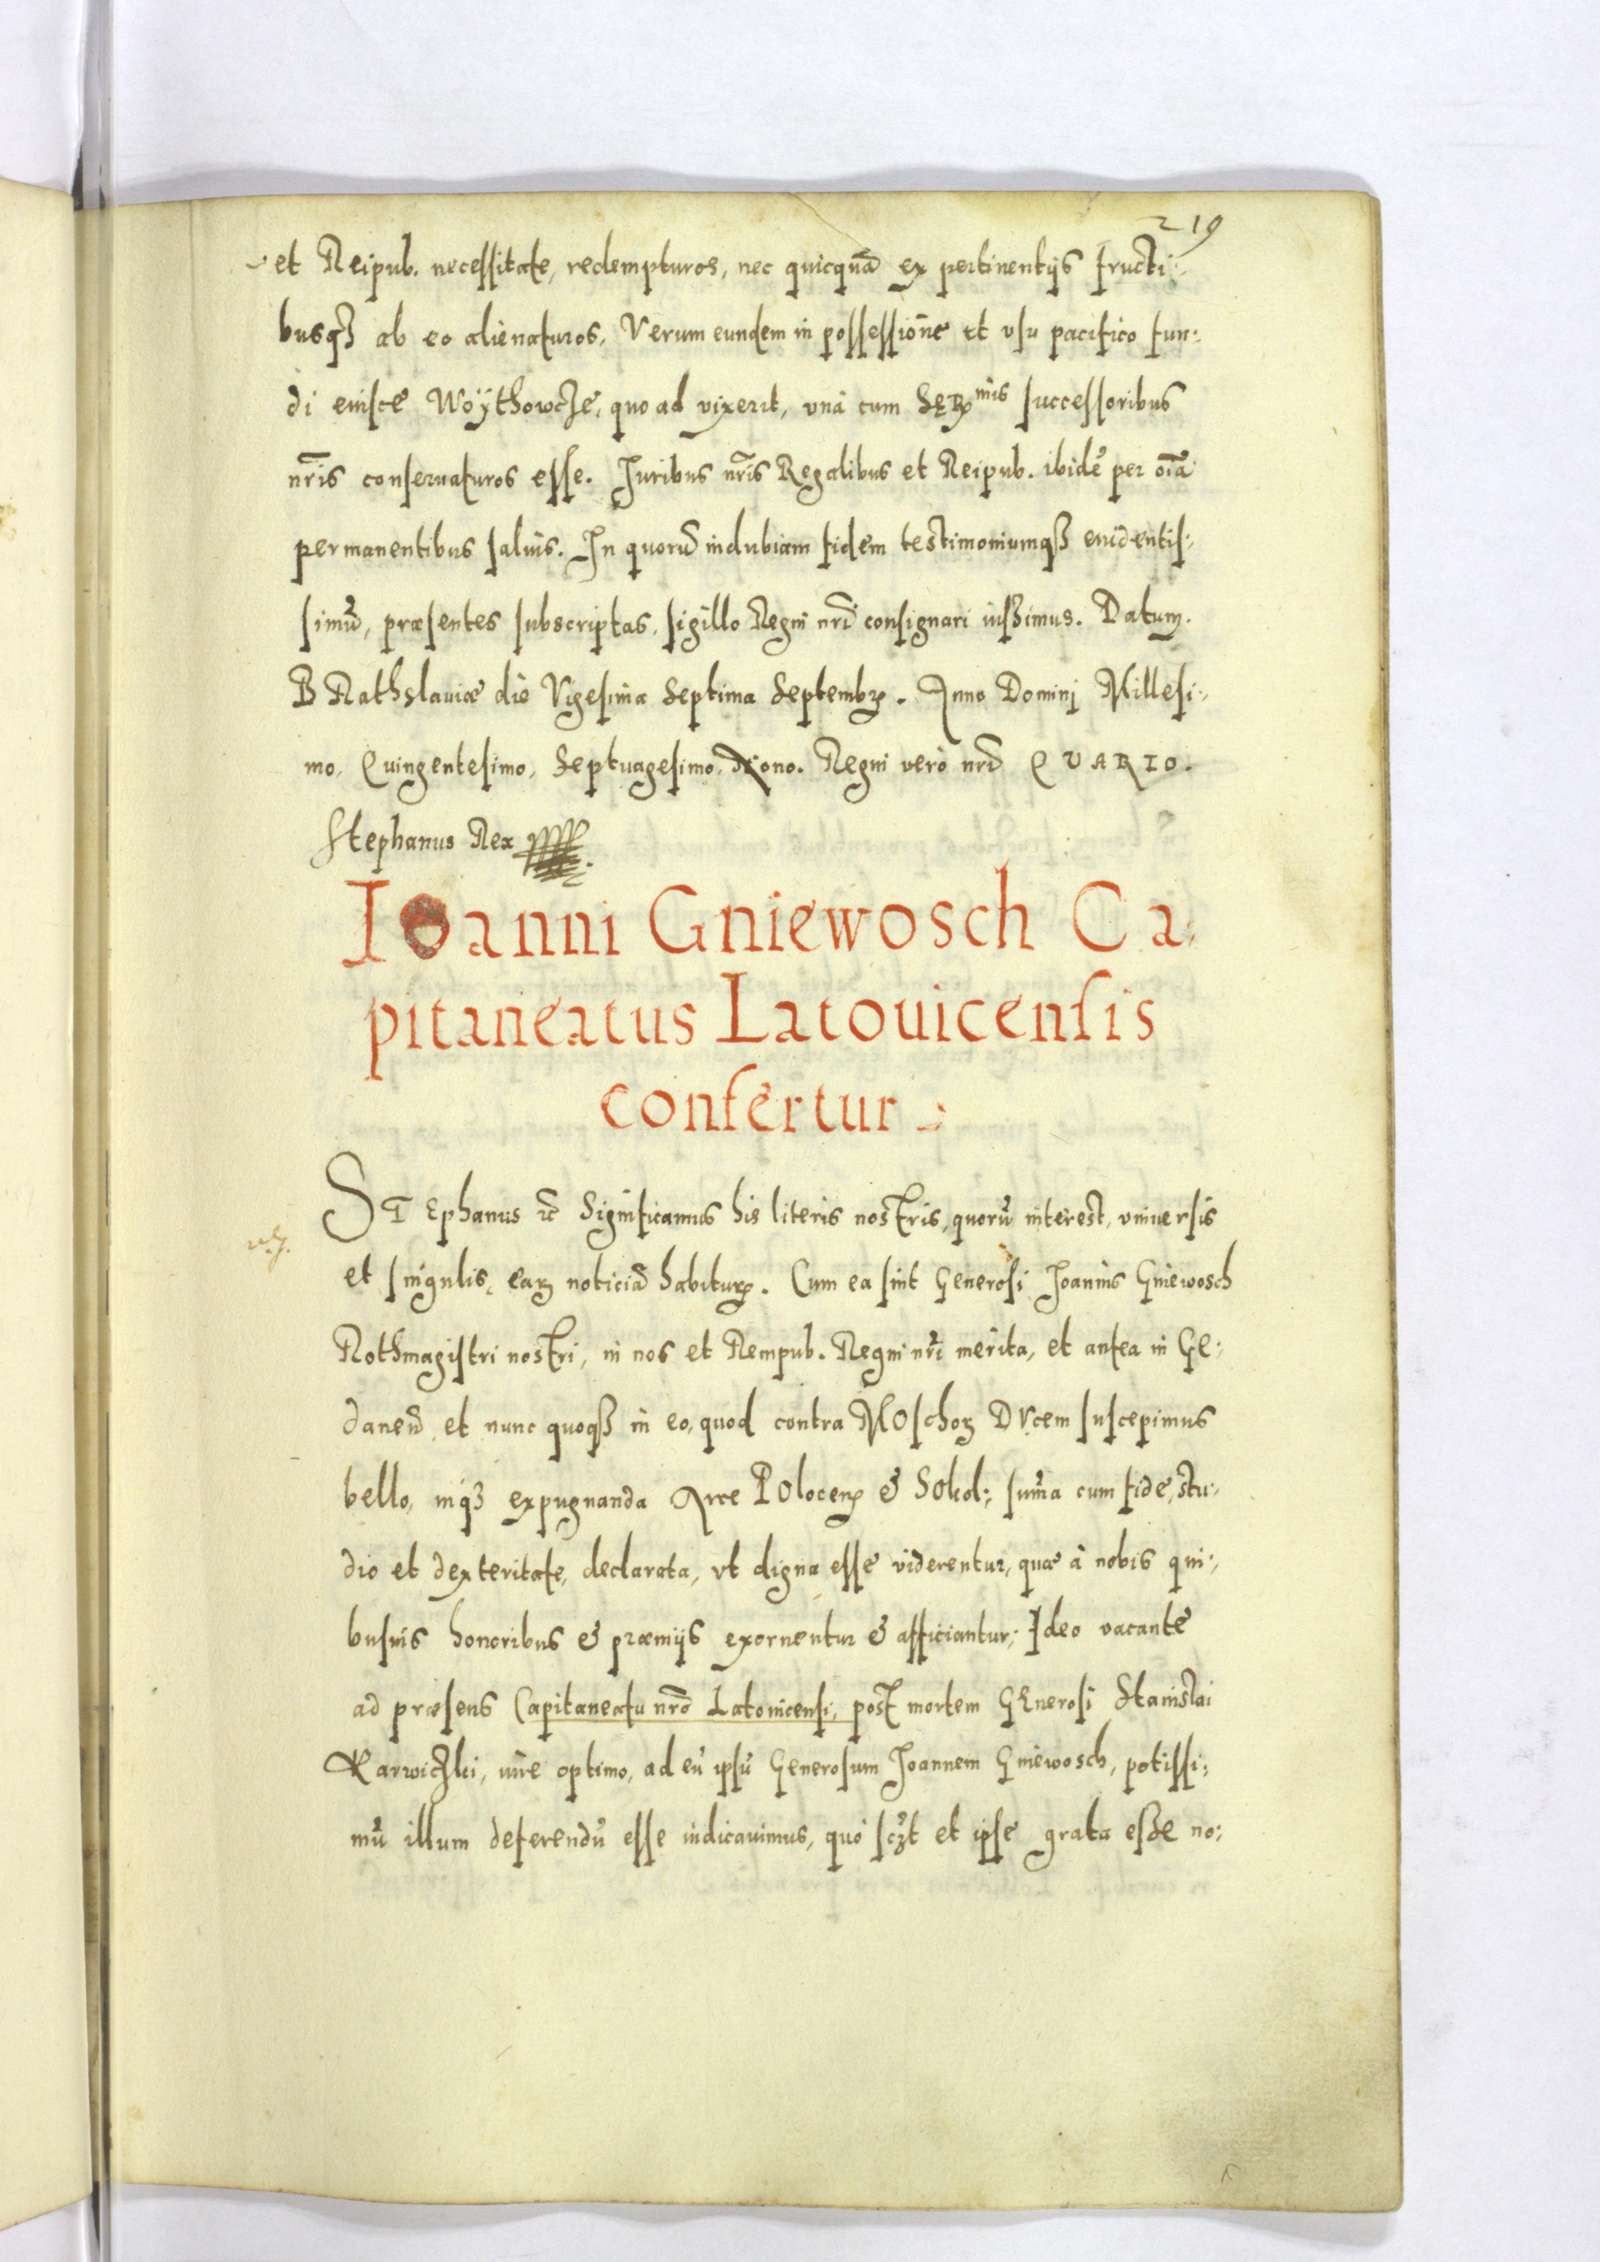 219
et Reipub. necessitate, redempturos, nec quicquā ex pertinentijs fructi:
busqꝫ ab eo alienaturos, Verum eundem in possessione et vsu pacifico fun:
di eiusce Woÿthowcze, quo ad vixerit, vnà cum SERmis successoribus
nr̄is conseruaturos esse. Juribus nr̄is Regalibus et Reipub. ibidē per oīa
permanentibus saluis. In quorū indubiam fidem testimoniumqꝫ euidentis:
simū, præsentes subscriptas, sigillo Regni nr̄i consignari iussimus. Datum
BRathslauiæ die Vigesima Septima Septembꝝ. Anno Dominj Millesi:
mo, Quingentesimo, Septuagesimo, Nono. Regni verò nr̄i QVARTO.
Stephanus Rex
Ioanni Gniewosch Ca:
pitaneatus Latouicensis
confertur
STEphanus ꝛc̄ Significamus his literis nostris, quorū interest, vniuersis
et singulis, eaꝝ noticiā habituꝝ. Cum ea sint Generosi Joannis Gniewosch
Rothmagistri nostri, in nos et Rempub. Regni nr̄i merita, et antea in Ge:
danen̄, et nunc quoqꝫ in eo, quod contra MOschoꝝ DVcem suscepimus
bello, inqꝫ expugnanda Arce POlocenꝭ & SOkol: sum̄a cum fide, stu:
dio et dexteritate, declarata, vt digna esse viderentur, quæ à nobis qui:
busuis honoribus & præmijs exornentur & afficiantur: Ideo vacante
ad præsens Capitaneatu nr̄o Latouicensi, post mortem GEnerosi Stanislai
Karwiczki, iure optimo, ad eū ipsū Generosum Joannem Gniewosch, potissi:
mū illum deferendū esse iudicauimus, quò sczt et ipse grata esse no: